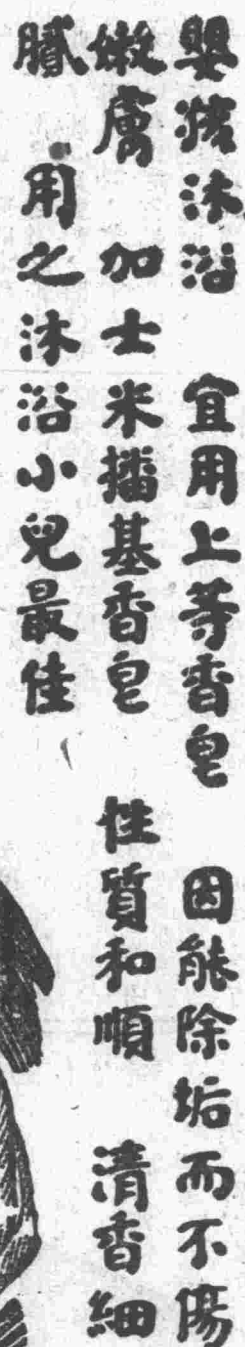 嬰孩沐浴 宜用上等香皂 因能除垢而不傷
嫩膚 加士米搔基香皂 性質和順 清香細
膩 用之沐浴小兒最佳